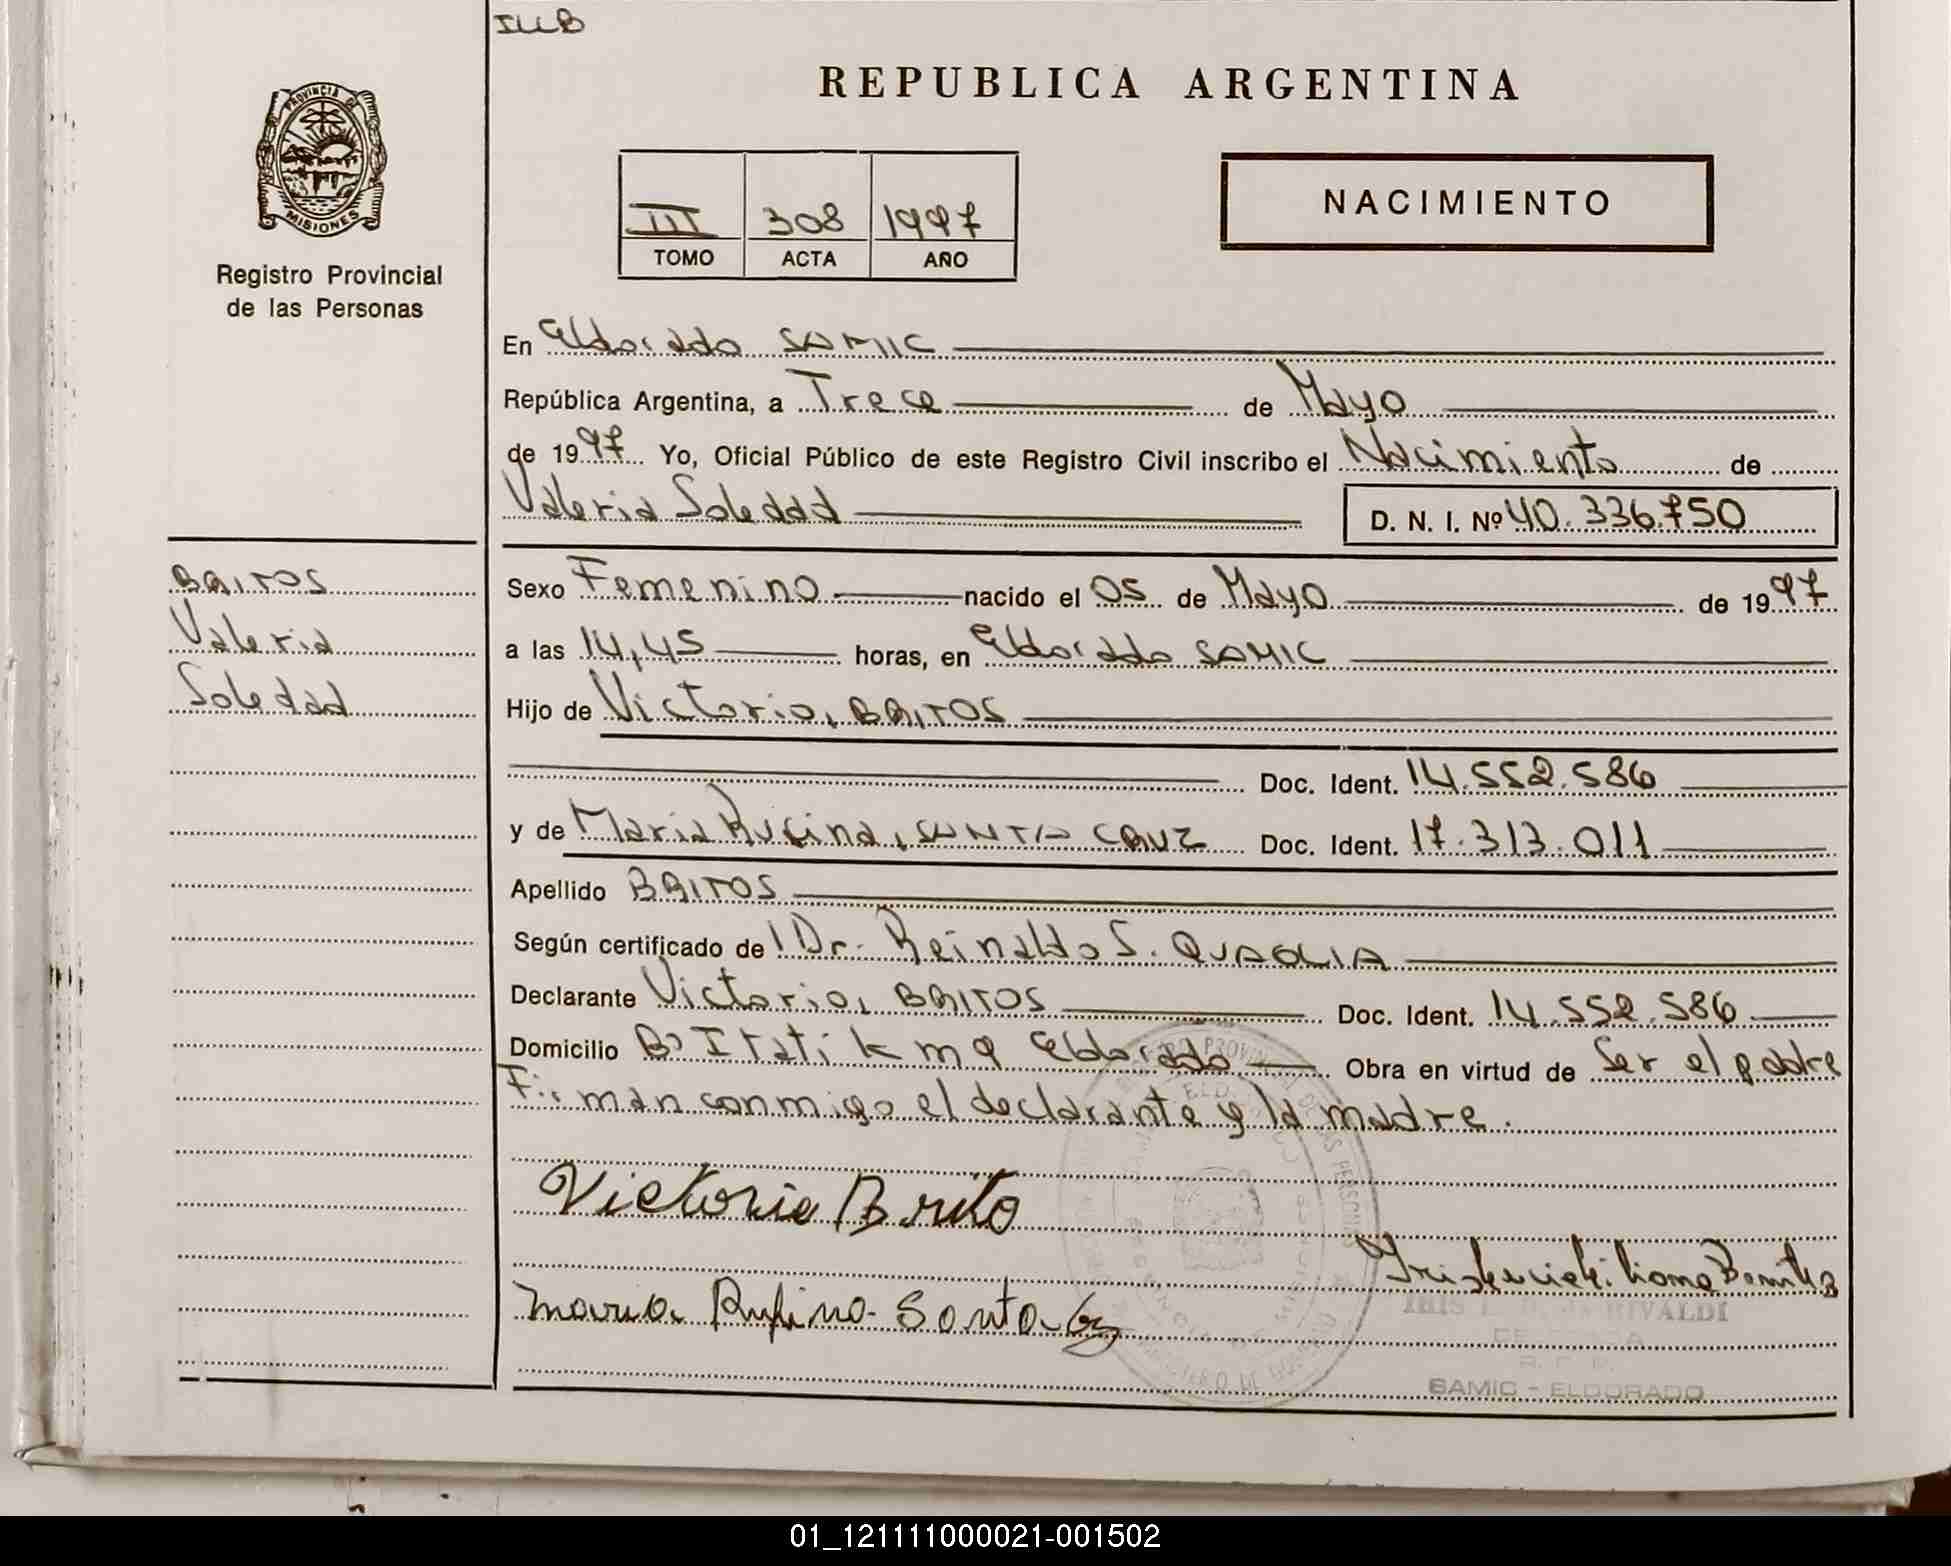 ILLB
REPUBLICA ARGENTINA
PROVINCIA DE
MISIONES
Registro Provincial
de las Personas
III 308 1997
TOMO ACTA AÑO
NACIMIENTO
En Eldorado SAMIC
República Argentina, a Trece de Mayo
de 1997 Yo, Oficial Público de este Registro Civil inscribo el Nacimiento de
Valeria Soledad D. N. I. Nº 40.336.750
BRITOS
Valeria
Soledad
Sexo Femenino nacido el 05 de Mayo de 1997
a las 14,45 horas, en Eldorado SAMIC
Hijo de Victorio, BRITOS
Doc. Ident. 14.552.586
y de Maria Rufina, SANTA CRUZ Doc. Ident. 17.313.011
Apellido BRITOS
Según certificado de Dr. Reinaldo S. QUAGLIA
Declarante Victorio, BRITOS Doc. Ident. 14.552.586
Domicilio Bº Itati km 9 Eldorado Obra en virtud de Ser el padre
Firman conmigo el declarante y la madre.
Victorio Brito
Maria Rufina Santa Cruz
RIVALDI
SAMIC - ELDORADO
01_121111000021-001502